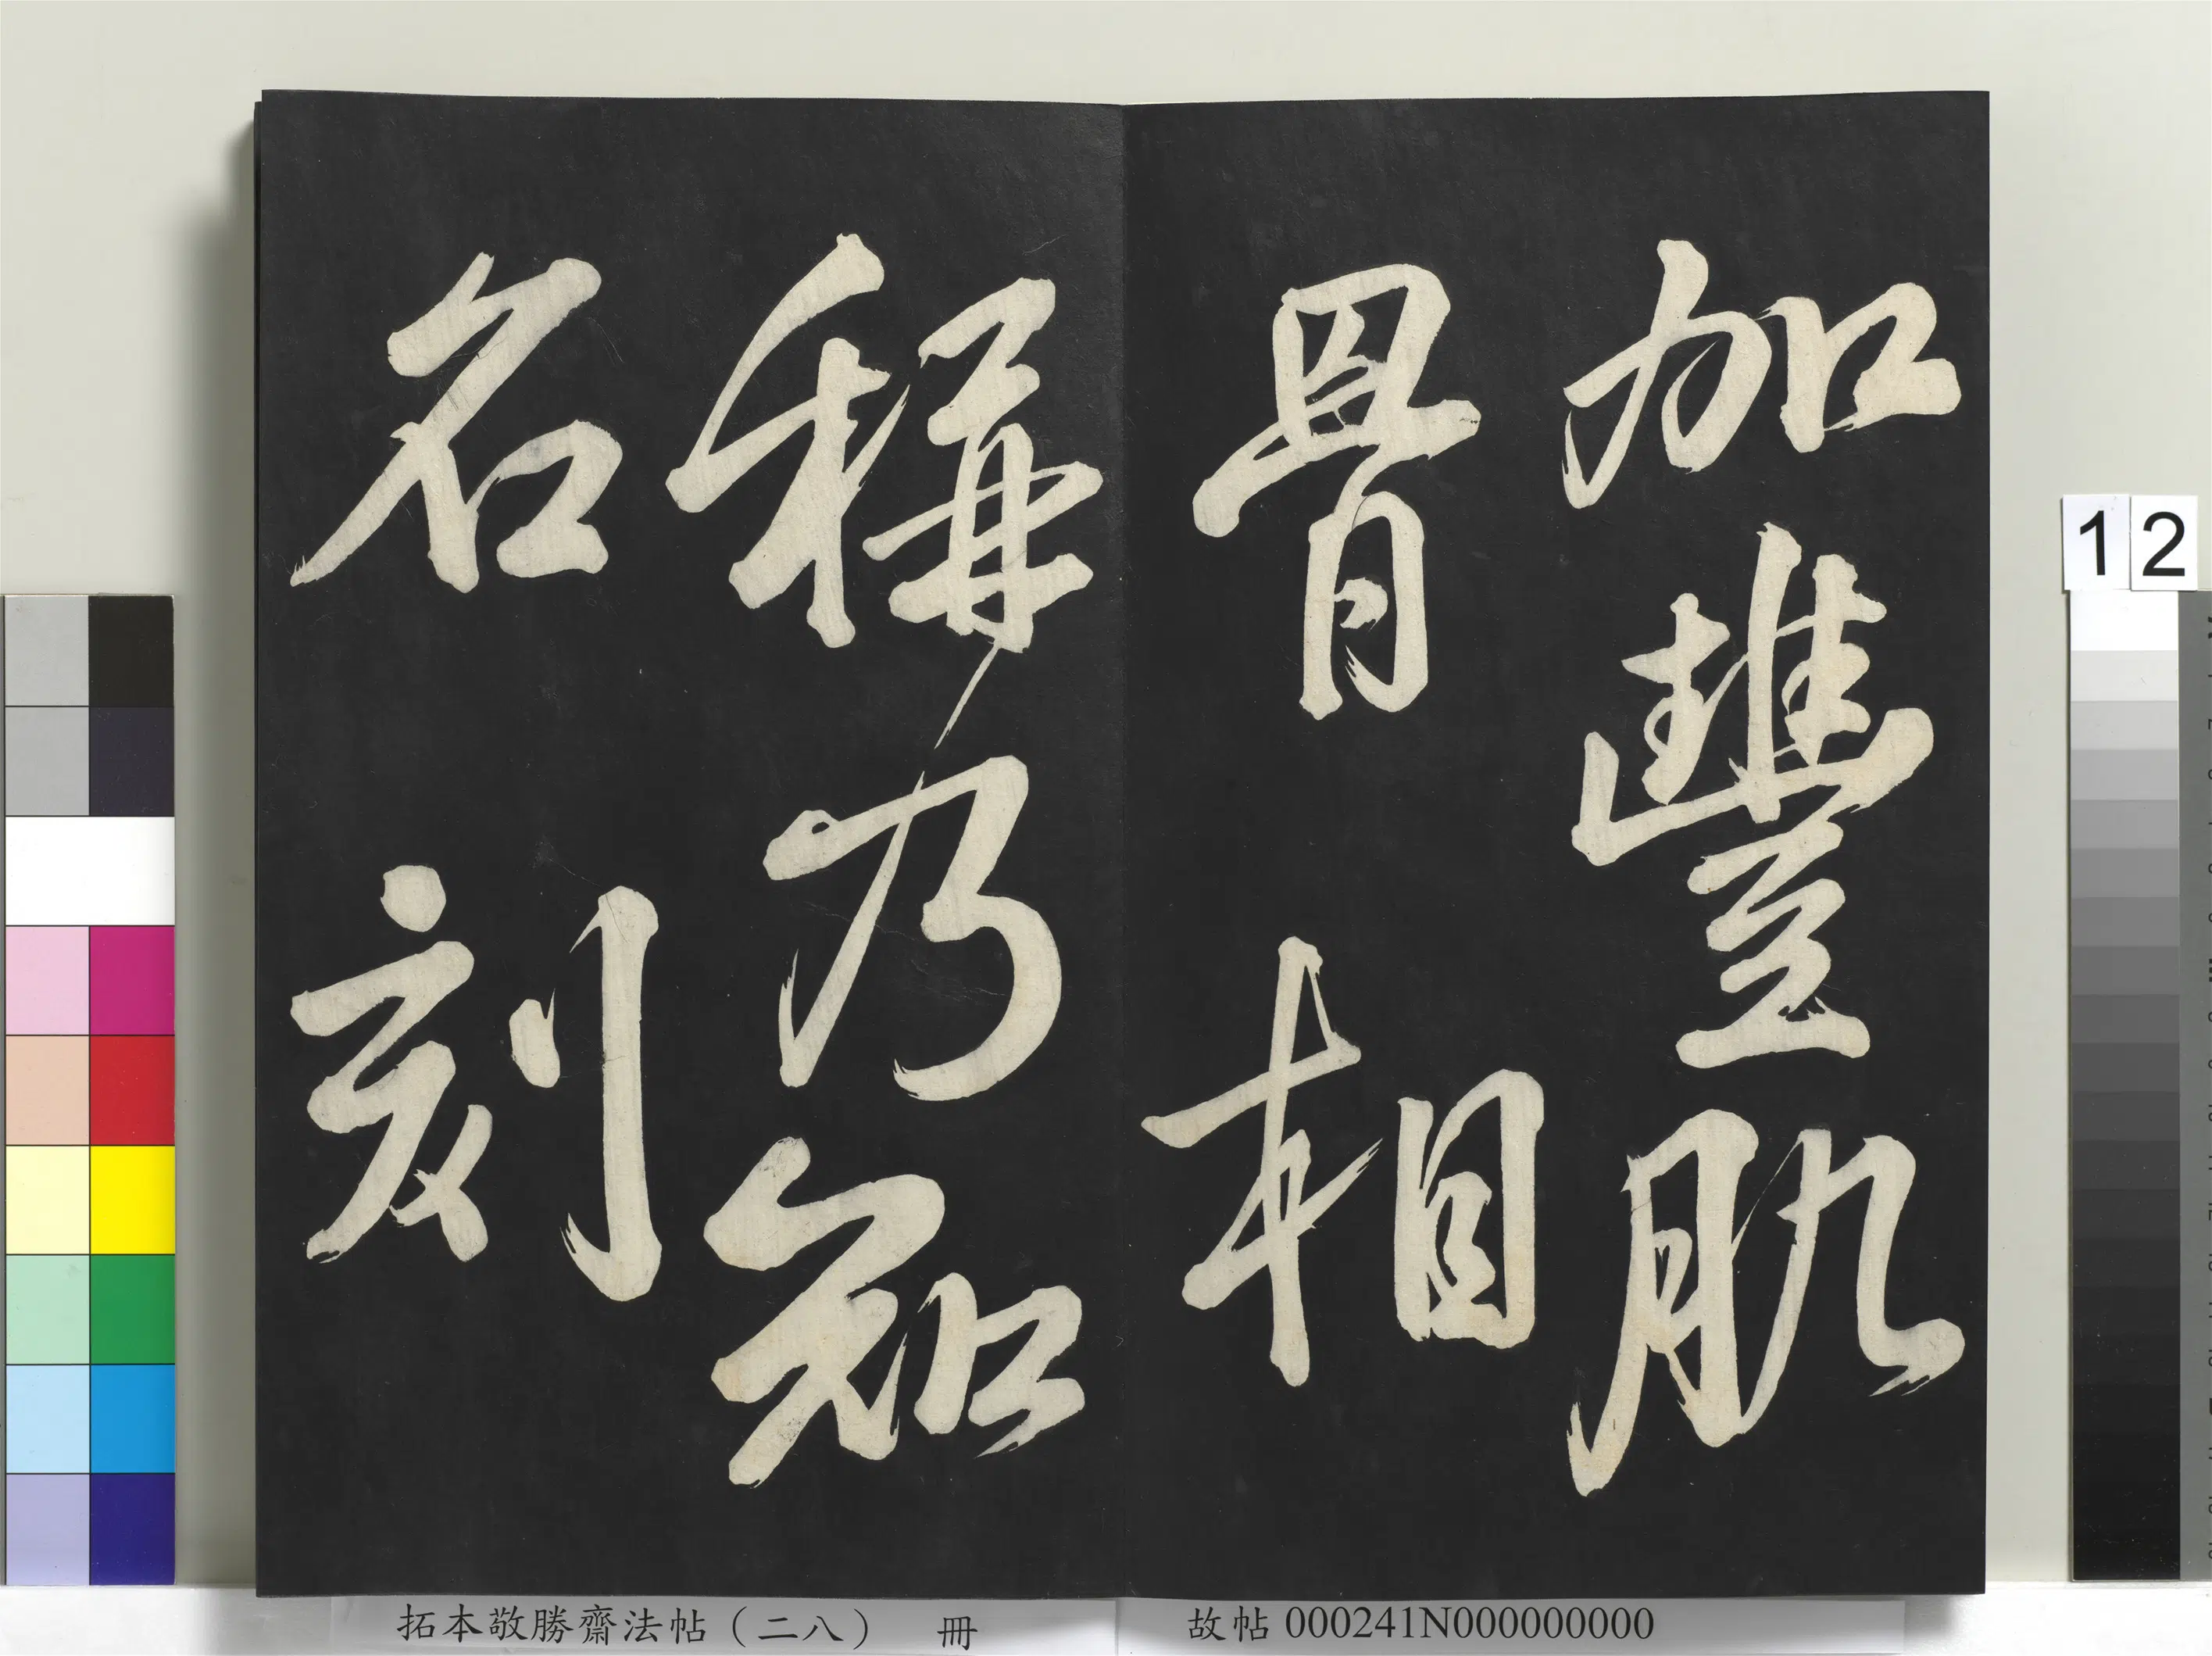 加豐肌
骨相
稱乃知
名刻
12
拓本敬勝齋法帖（二八） 冊
故帖 000241N000000000